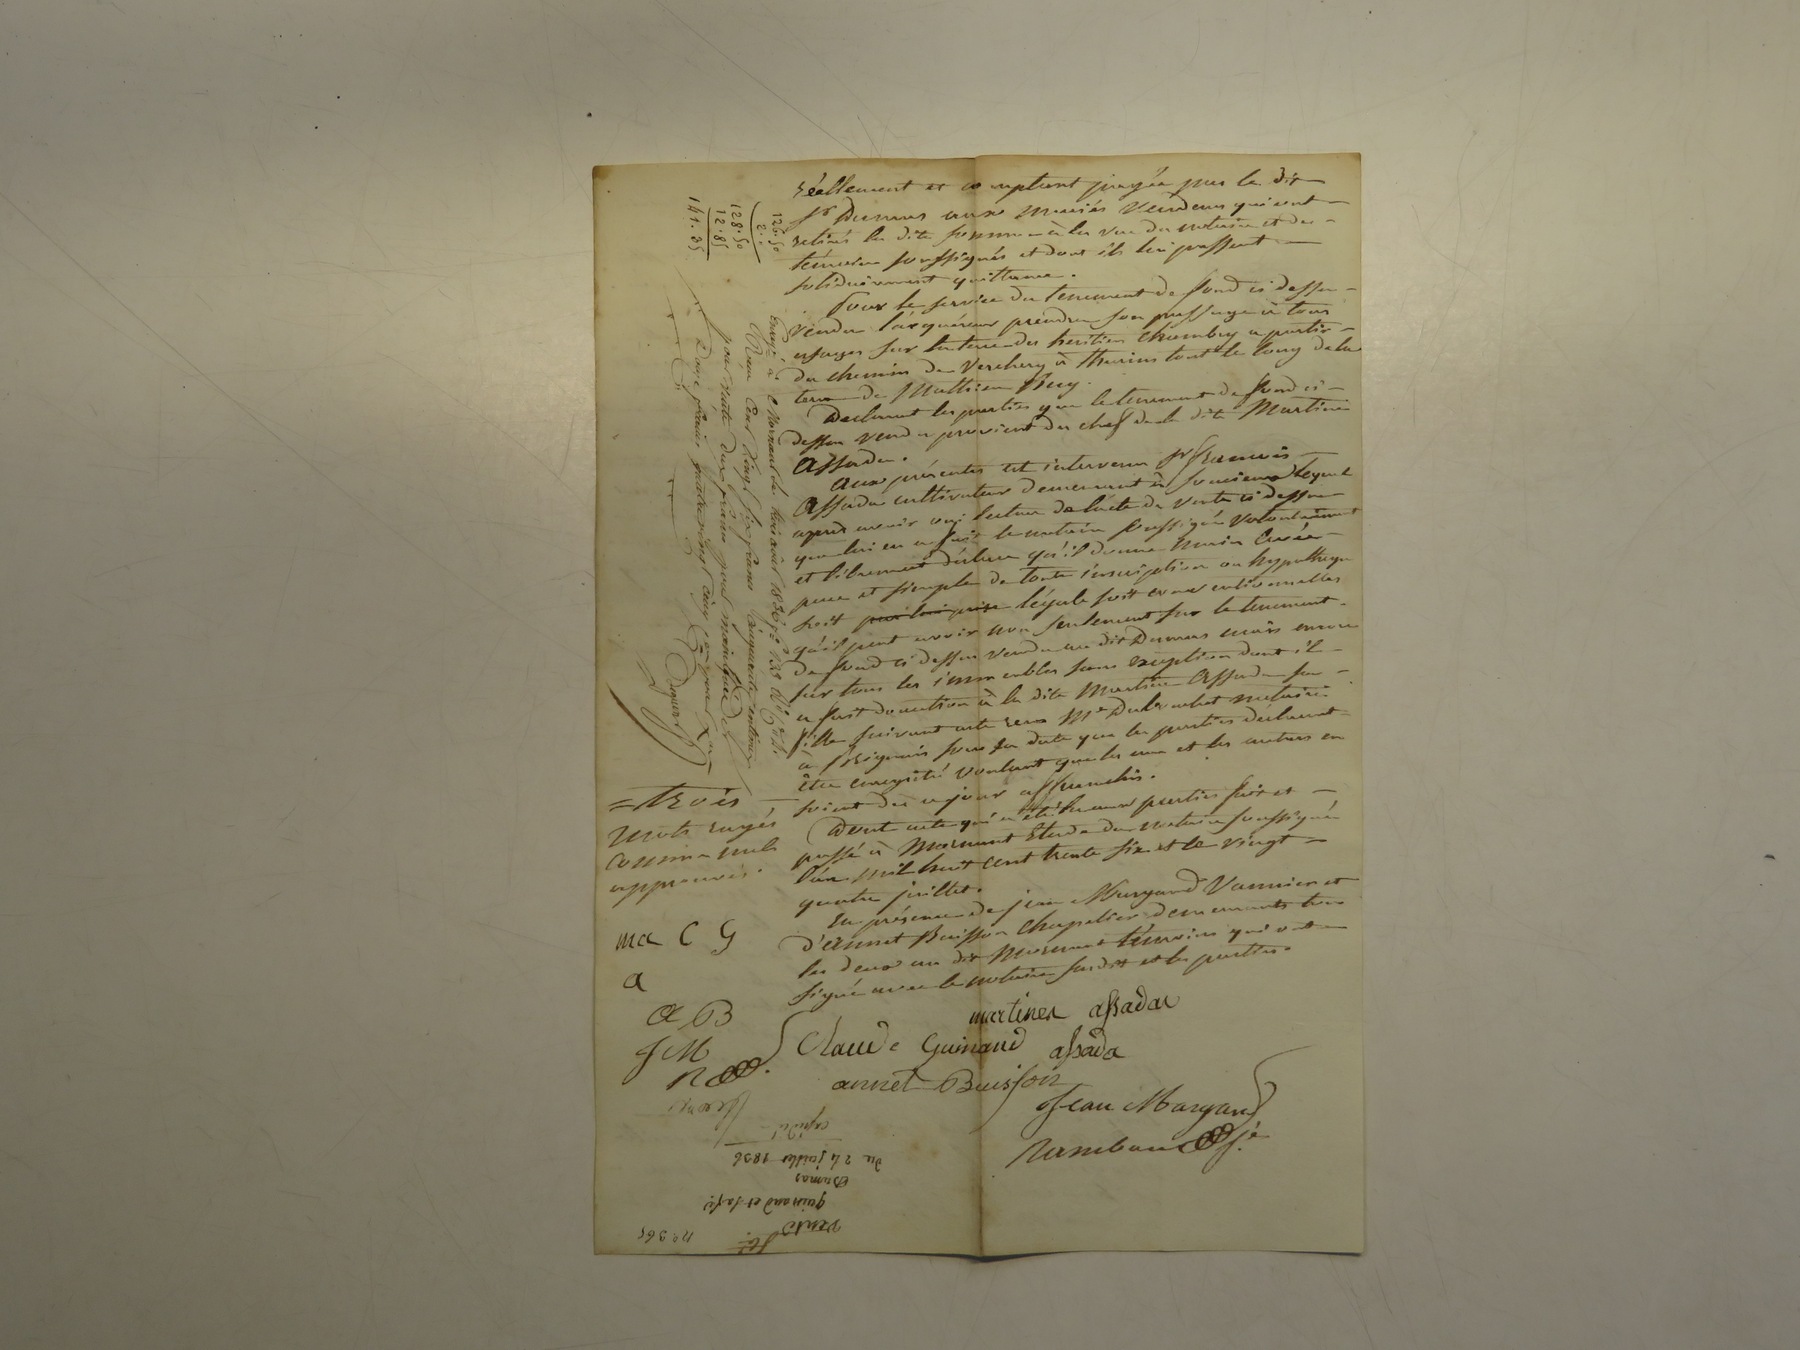 réellement et comptant payée par le dit
Sr Dumas aux mariés vendeurs qui ont
retirés la dite somme à la vue du notaire et des
témoins soussignés et dont ils lui passent
solidairement quittance.
Pour le service du tenement de fond ci dessus
vendu l'acquéreur prendra son passage à tous
usages sur la terre des heritiers Chambry a partir
du chemin de Verchery à Thurins tout le long de la
terre de Mathieu
Declarent les parties que le tenement de fond ci
dessus vendu provient du chef de la dite Martine
Assada.
Aux présentes est intervenu Sr françois
Assada cultivateur demeurant à soucieu lequel
apres avoir oui lecture de l'acte de vente ci dessus
que lui en a fait le notaire soussigné volontairement
et librement déclare qu'il donne main levée
pure et simple de toute inscription ou hypotheque
soit par lui prise légale soit conventionnelles
qu'il peut avoir non seulement sur le tenement
de fond ci dessus vendu au dit Dumas mais encore
sur tous les immeubles sans exception dont il
a fait donation à la dite Martine Assada sa
fille suivant acte reçu Me notaire
à sous sa date que les parties déclarent
être enregistré voulant que les uns et les autres en
soient des a jour affranchis.
Dont acte qui a été lu aux parties fait et
passé à Mornant Etude du notaire soussigné
l'an mil huit cent trente six et le vingt
quatre juillet.
En présence de jean Margand Vannier et
d'annet Buisson Chapelier demeurants tous
les deux au dit Mornant témoins qui ont
signé avec le notaire susdit et les parties.
martine assadae
Claude Guinand assada
annet Buisson
Jean Margand
Rambaud
126.50
2.
128.50
12.85
141.35
Enregé à Mornant le trois août 1836
Reçu Cent vingt six francs cinquante centimes
pour vente deux francs pour mainlevée
Douze francs quatre vingt cinq
= trois
mots rayés
comme nuls
approuvés.
ma C G
a
a B
J M
R
No 365
vente
guinand et sa fe
Dumas
du 24 juillet 1836
expédié